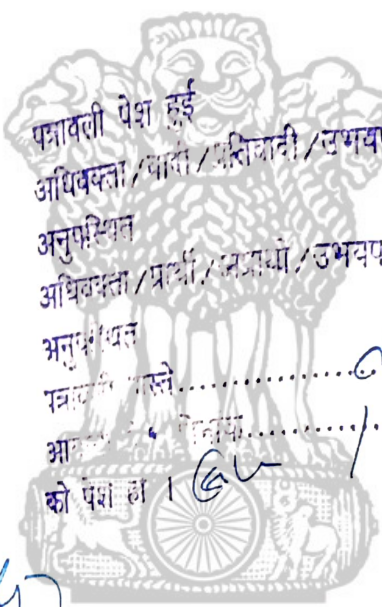 पत्रावली पेश हुई
अधिवक्ता/वादी/प्रतिवादी/उभयप
अनुपस्थित
अधिवक्ता/प्रार्थी/अप्रार्थी/उभयप
अनुपस्थित
पत्रावली वास्ते....................
दिनांक....................
को पेश हो ।